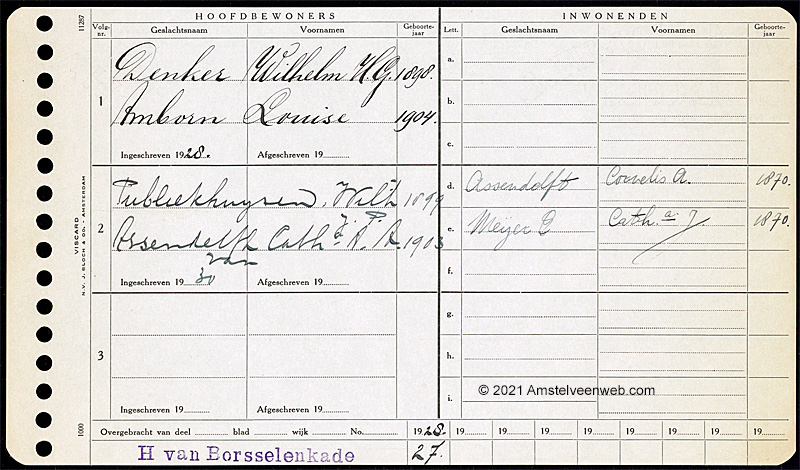 HOOFDBEWONERS INWONENDEN
11287
Volg-nr. Geslachtsnaam Voornamen Geboorte-jaar Lett. Geslachtsnaam Voornamen Geboorte-jaar
1
Denker Wilhelm H.G. 1898.
Amborn Louise 1904.
Ingeschreven 1928. Afgeschreven 19
a.
b.
c.
2
Publiekhuysen, Wilh 1899
J. P.
Assendelft Cath.a A. A. 1903
van
Ingeschreven 1930 Afgeschreven 19
d. Assendelft Cornelis A. 1870.
e. Meijer Cath.a J. 1870.
f.
3
Ingeschreven 19 Afgeschreven 19
g.
h.
i.
© 2021 Amstelveenweb.com
VISCARD
N.V. J. BLOCH & CO. - AMSTERDAM
1000
Overgebracht van deel blad wijk No. 1928. 19 19 19 19 19 19 19 19
H van Borsselenkade 27.